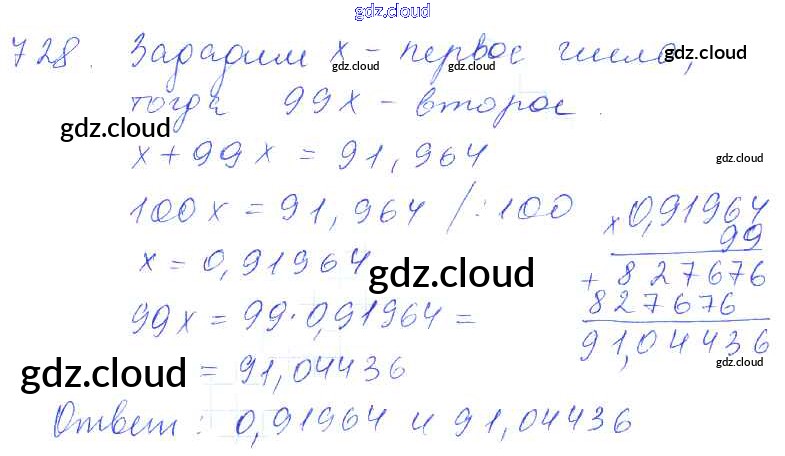 gdz.cloud
728. Зададим x - первое число,
gdz.cloud gdz.cloud gdz.cloud
тогда 99x - второе.
gdz.cloud
x + 99x = 91,964
gdz.cloud
100x = 91,964 /:100
x = 0,91964
gdz.cloud
99x = 99·0,91964 =
= 91,04436
gdz.cloud
× 0,91964
99
+ 827676
827676
91,04436
gdz.cloud
Ответ: 0,91964 и 91,04436